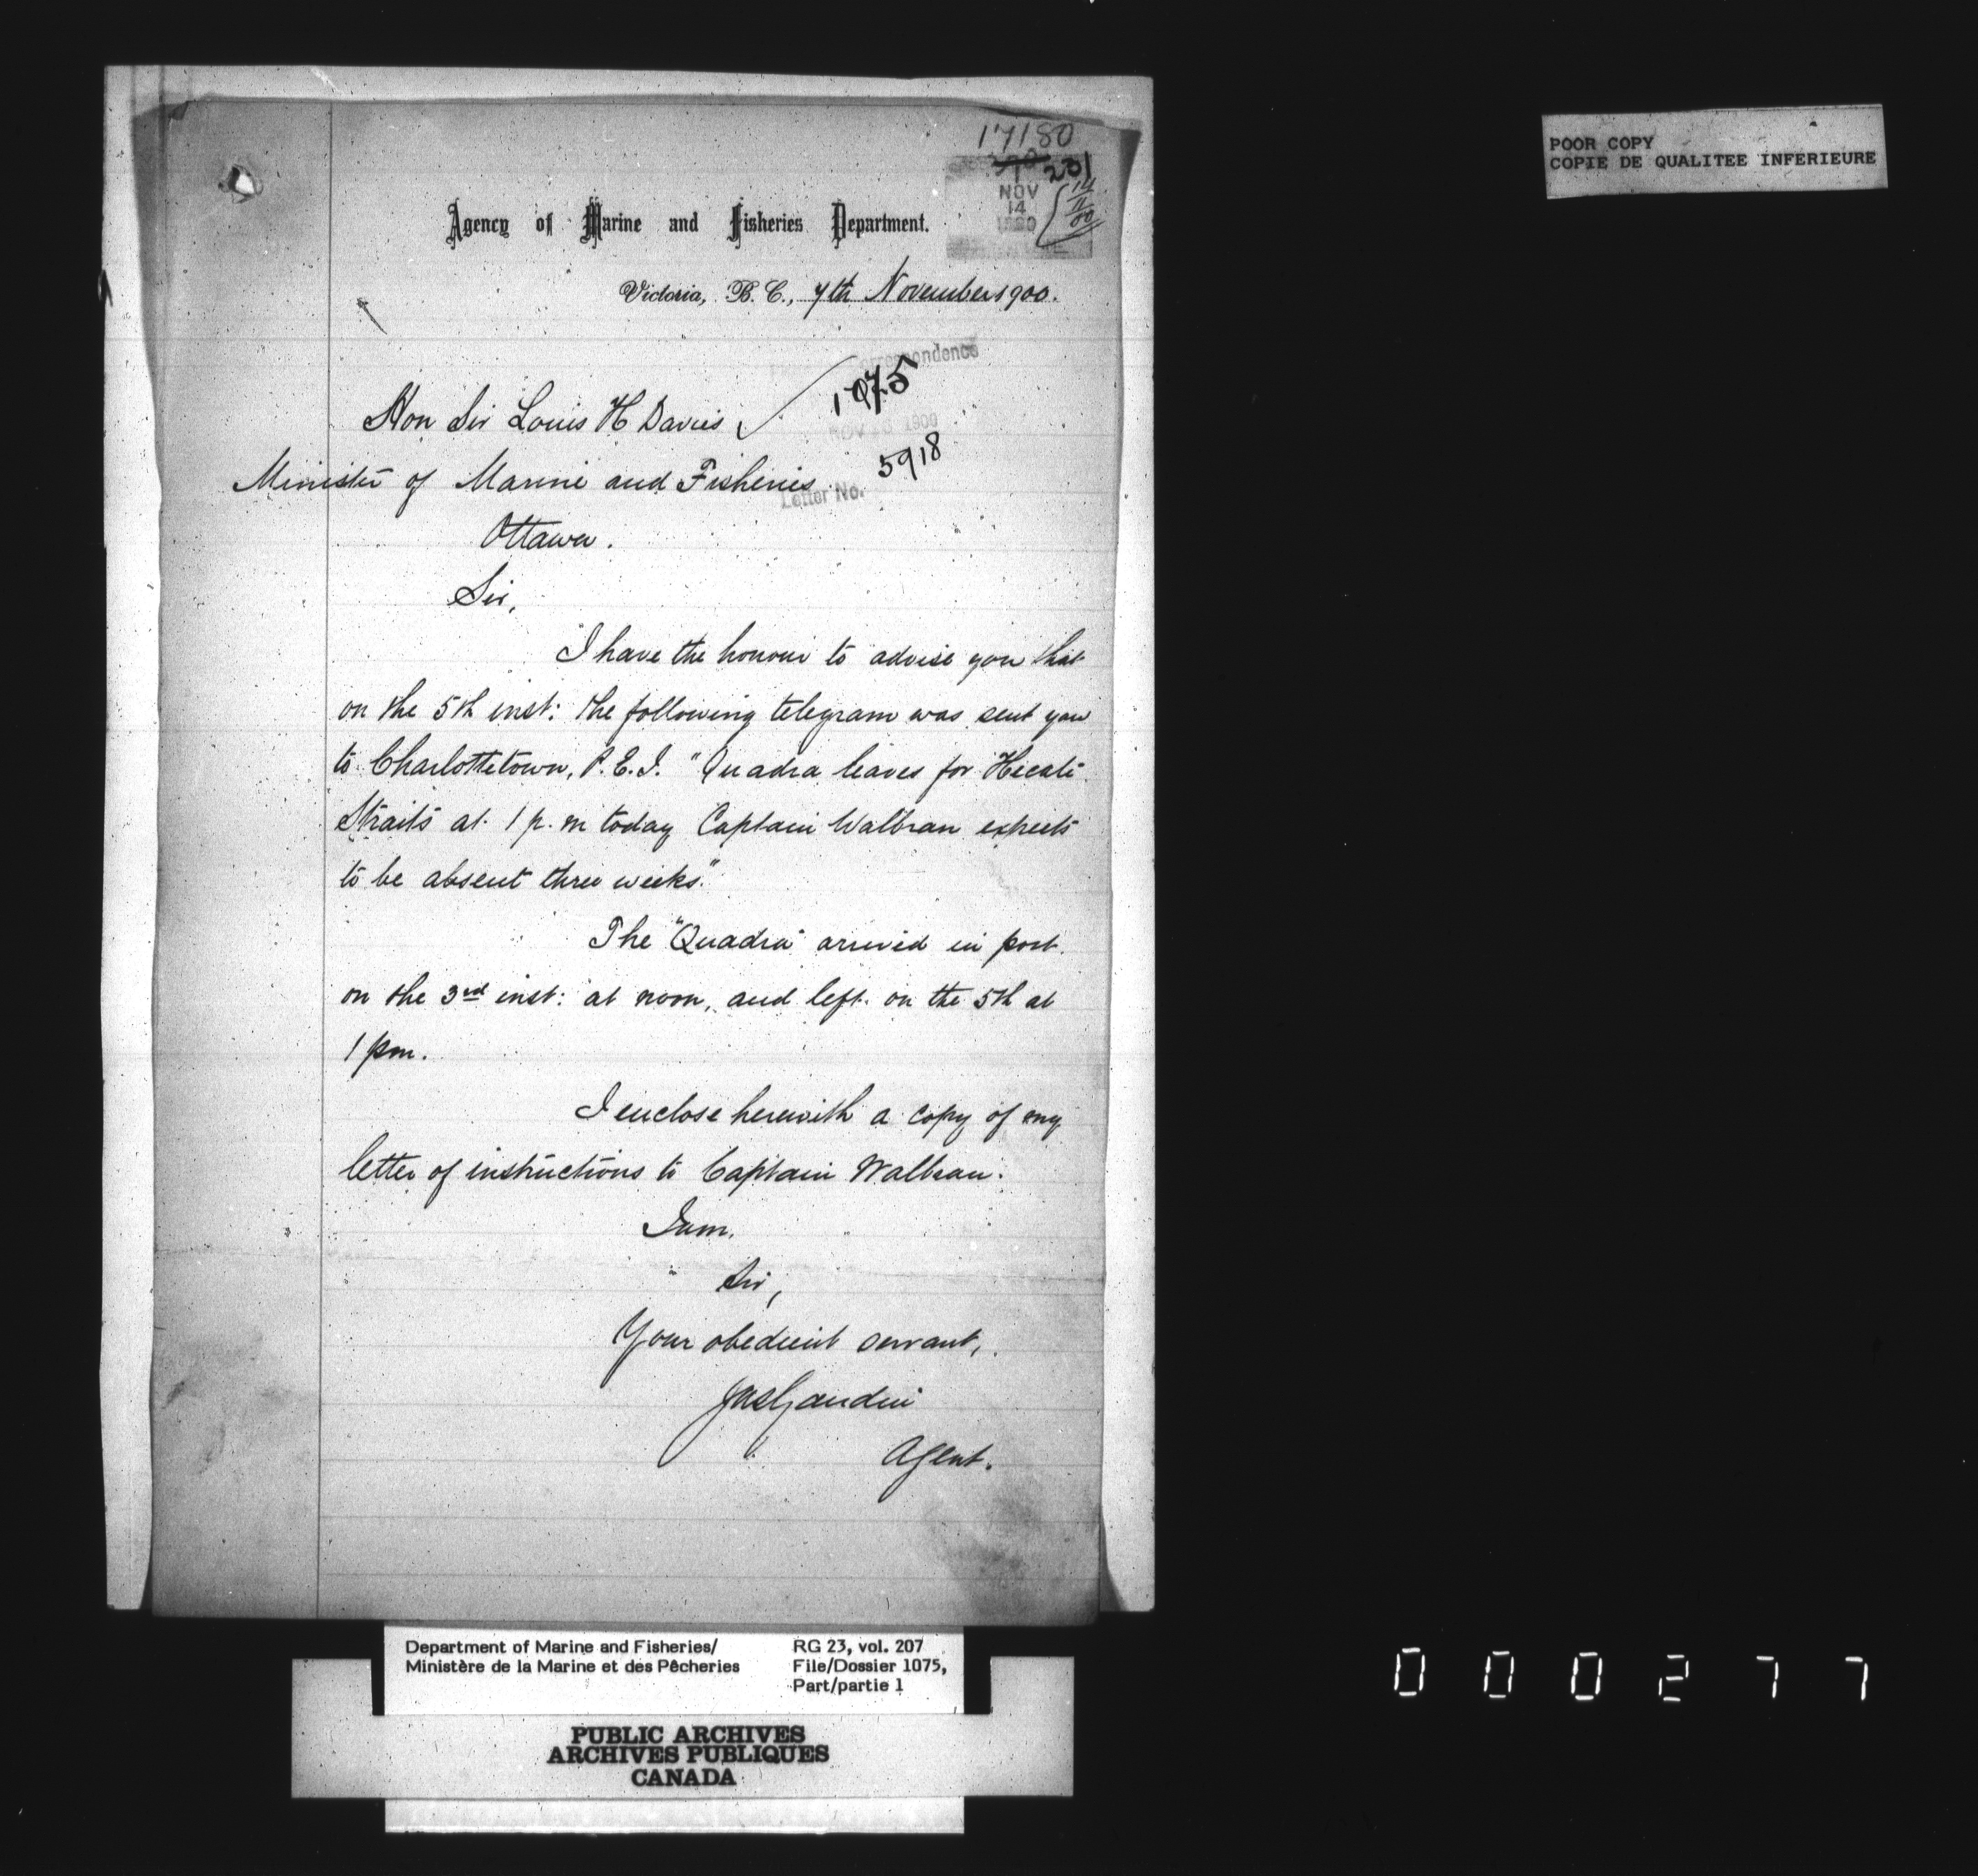 17180
231
NOV
14
1900
14/11/00
Agency of Marine and Fisheries Department.
Victoria, B.C., 7th November 1900.
Correspondence
1075
NOV 1900
5918
Letter No.
Hon Sir Louis H Davies,
Minister of Marine and Fisheries
Ottawa.
Sir,
I have the honour to advise you that
on the 5th inst: the following telegram was sent you
to Charlottetown, P.E.I. "Quadra leaves for Hecate
Straits at 1 p.m today Captain Walbran expects
to be absent three weeks."
The "Quadra" arrived in port
on the 3rd inst: at noon, and left on the 5th at
1 pm.
I enclose herewith a copy of my
letter of instructions to Captain Walbran.
I am,
Sir,
Your obedient servant,
Jas Gaudin
Agent.
POOR COPY
COPIE DE QUALITEE INFERIEURE
Department of Marine and Fisheries/
Ministère de la Marine et des Pêcheries
RG 23, vol. 207
File/Dossier 1075,
Part/partie 1
PUBLIC ARCHIVES
ARCHIVES PUBLIQUES
CANADA
000277